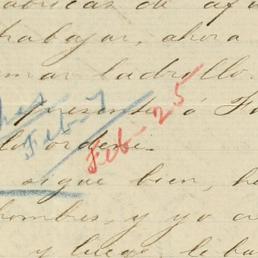 fabricas de af
trabajar, ahora
mar ladrillo.
presente á F
lo ordené.
Feb-7
Feb- 25
sigue bien, he
hombres, y yo c
y luego le ba